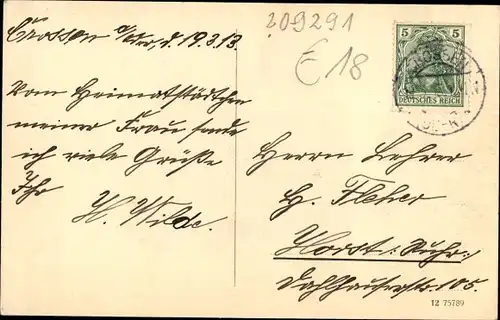 Crossen a/Oder, d. 19.3.13.
Vom Heimatstädtchen
meiner Frau sende
ich viele Grüße
Ihr
H. Wilde.
209291
€18
5 5
DEUTSCHES REICH
CROSSEN
Herrn Lehrer
H. Fleher
Horst-Ruhr.
Dahlhauserstr. 105.
12 75789